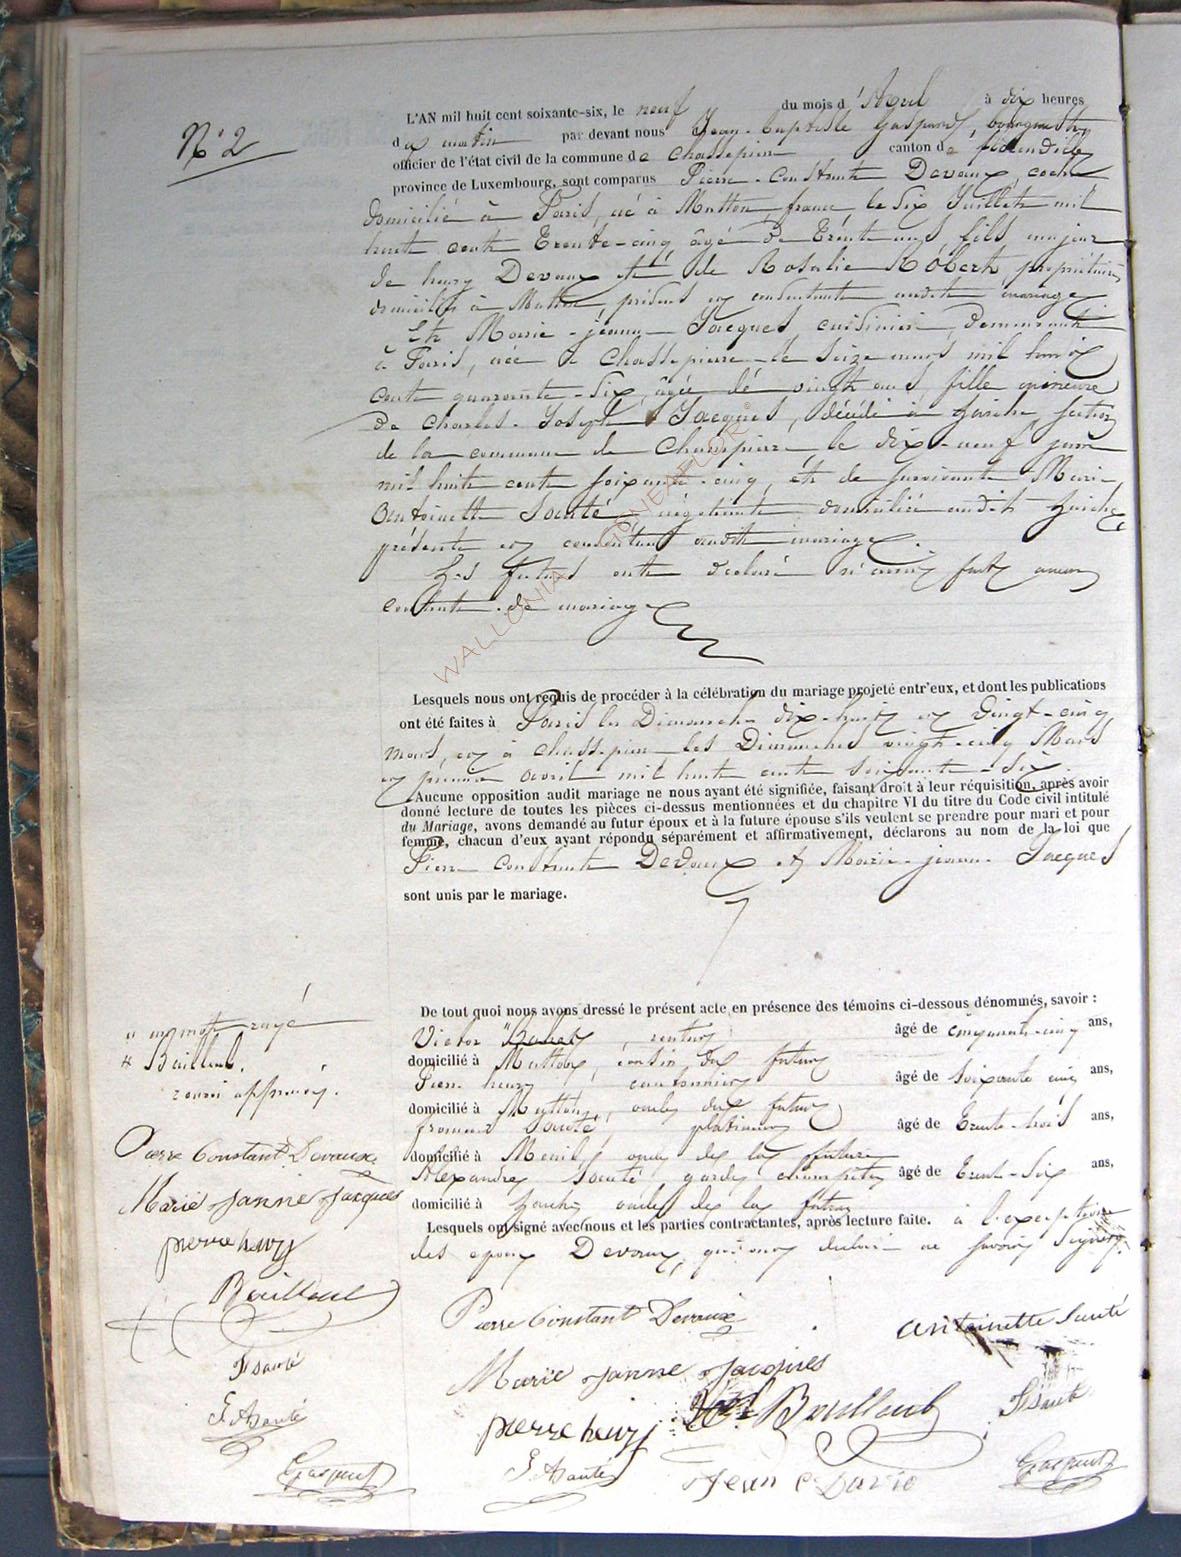 N° 2
L'AN mil huit cent soixante-six, le neuf du mois d'Avril à dix heures
du matin par devant nous Jean-Baptiste Gaspard, bourgmestre
officier de l'état civil de la commune de Chassepierre canton de florenville
province de Luxembourg, sont comparus Pierre-Constant Devaux, cocher
domicilié à Paris, né à Matton, france le six Juillet mil
huit cent Trente-cinq, âgé de Trente ans, fils majeur
de henry Devaux et de Rosalie Robert, propriétaires
domiciliés à Matton, présents et consentant audit mariage
Et Marie-jeanne Jacques, cuisinière, demeurant
à Paris, née à Chassepierre le seize mars mil huit
cent quarante-six, âgée de vingt ans, fille mineure
de Charles-Joseph Jacques, décédé à Laiche, section
de la commune de Chassepierre le dix-neuf juin
mil huit cent soixante-cinq, et de survivante Marie
Antoinette Santé, négociante domiciliée audit Laiche
présente et consentant audit mariage.
Les futurs ont déclaré n'avoir fait aucun
contrat de mariage
Lesquels nous ont requis de procéder à la célébration du mariage projeté entr'eux, et dont les publications
ont été faites à Paris les Dimanches dix-huit et Vingt-cinq
mars, et à Chassepierre les Dimanches vingt-cinq Mars
et premier avril mil huit cent soixante-six.
Aucune opposition audit mariage ne nous ayant été signifiée, faisant droit à leur réquisition, après avoir
donné lecture de toutes les pièces ci-dessus mentionnées et du chapitre VI du titre du Code civil intitulé
du Mariage, avons demandé au futur époux et à la future épouse s'ils veulent se prendre pour mari et pour
femme, chacun d'eux ayant répondu séparément et affirmativement, déclarons au nom de la loi que
Pierre Constant Devaux et Marie-jeanne Jacques
sont unis par le mariage.
De tout quoi nous avons dressé le présent acte en présence des témoins ci-dessous dénommés, savoir :
Victor rentier âgé de cinquante-cinq ans,
domicilié à Matton, cousin du futur
Pierre henry cantonnier âgé de soixante cinq ans,
domicilié à Matton, oncle du futur
Santé, âgé de Trente-trois ans,
domicilié à oncle de la future
Alexandre Santé garde champêtre âgé de Trente-Six ans,
domicilié à Laiche oncle de la future
Lesquels ont signé avec nous et les parties contractantes, après lecture faite. à l'exception
des époux Devaux, qui ont déclaré ne savoir signer
un mot rayé
Bailleul.
renvoi approuvés.
Pierre Constant Devaux
Marie Janne Jacques
pierre henry
Bailleul
F Santé
A Santé
Gaspard
Pierre Constant Devaux
antoinette Santé
Marie Janne Jacques
Bailleul
F Santé
pierre henry
A Santé
Gaspard
WALLONIA GENEAFLOR©